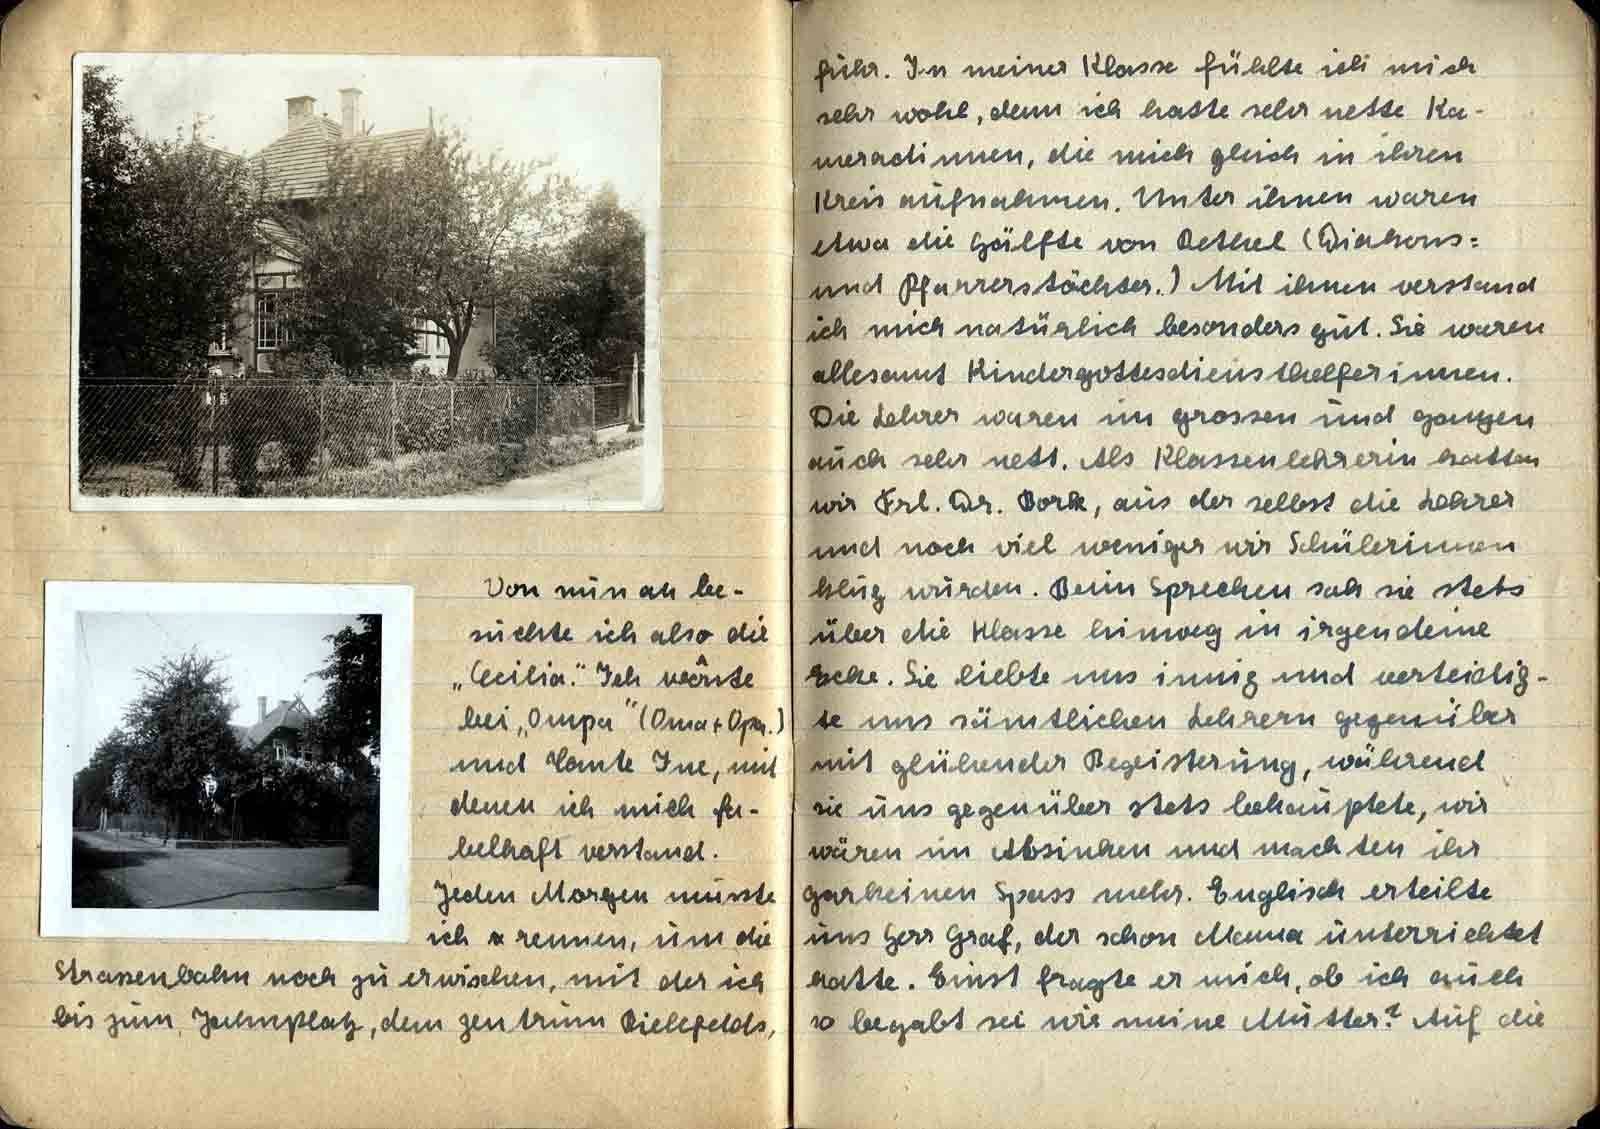 Von nun an be-
suchte ich also die
„Cecilia." Ich wohnte
bei „Ompa" (Oma + Opa.)
und Tante Ine, mit
denen ich mich fa-
belhaft verstand.
Jeden Morgen musste
ich rennen, um die
Strassenbahn noch zu erwischen, mit der ich
bis zum Jahnplatz, dem Zentrum Bielefelds,
fuhr. In meiner Klasse fühlte ich mich
sehr wohl, denn ich hatte sehr nette Ka-
meradinnen, die mich gleich in ihren
Kreis aufnahmen. Unter ihnen waren
etwa die Hälfte von Bethel (Diakons=
und Pfarrerstöchter.) Mit ihnen verstand
ich mich natürlich besonders gut. Sie waren
allesamt Kindergottesdiensthelferinnen.
Die Lehrer waren im grossen und ganzen
auch sehr nett. Als Klassenlehrerin hatten
wir Frl. Dr. Bork, aus der selbst die Lehrer
und noch viel weniger wir Schülerinnen
klug wurden. Beim Sprechen sah sie stets
über die Klasse hinweg in irgendeine
Ecke. Sie liebte uns innig und verteidig-
te uns sämtlichen Lehrern gegenüber
mit glühender Begeisterung, während
sie uns gegenüber stets behauptete, wir
wären im Absinken und machten ihr
garkeinen Spass mehr. Englisch erteilte
uns Herr Graf, der schon Mama unterrichtet
hatte. Einst fragte er mich, ob ich auch
so begabt sei wie meine Mutter? Auf die